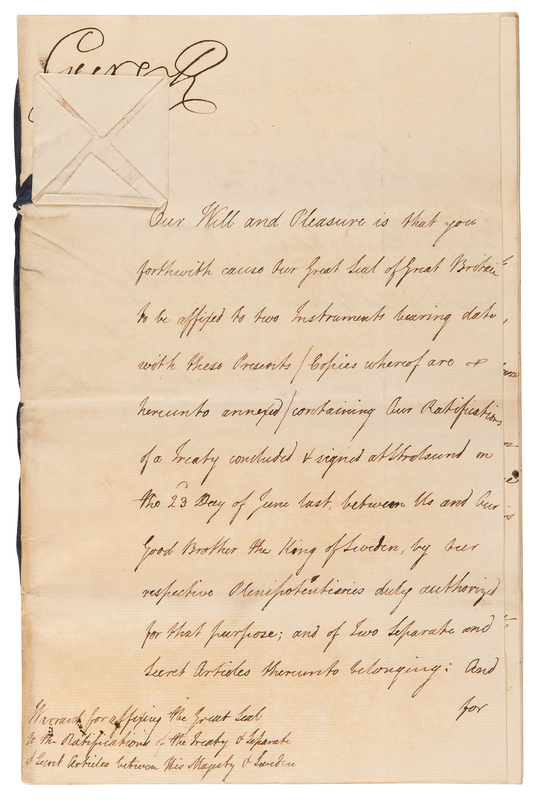 George R
Our Will and Pleasure is that you
forthwith cause Our Great Seal of Great Britain
to be affixed to two Instruments bearing date
with these Presents / Copies whereof are
hereunto annexed / containing Our Ratifications
of a Treaty concluded & signed at Stralsund on
the 23 Day of June last, between Us and Our
Good Brother the King of Sweden, by Our
respective Plenipotentiaries duly authorized
for that purpose; and of Two Separate and
Secret Articles thereunto belonging: And
for
Warrant for affixing the Great Seal
to the Ratifications of the Treaty & Separate
& Secret Articles between His Majesty & Sweden